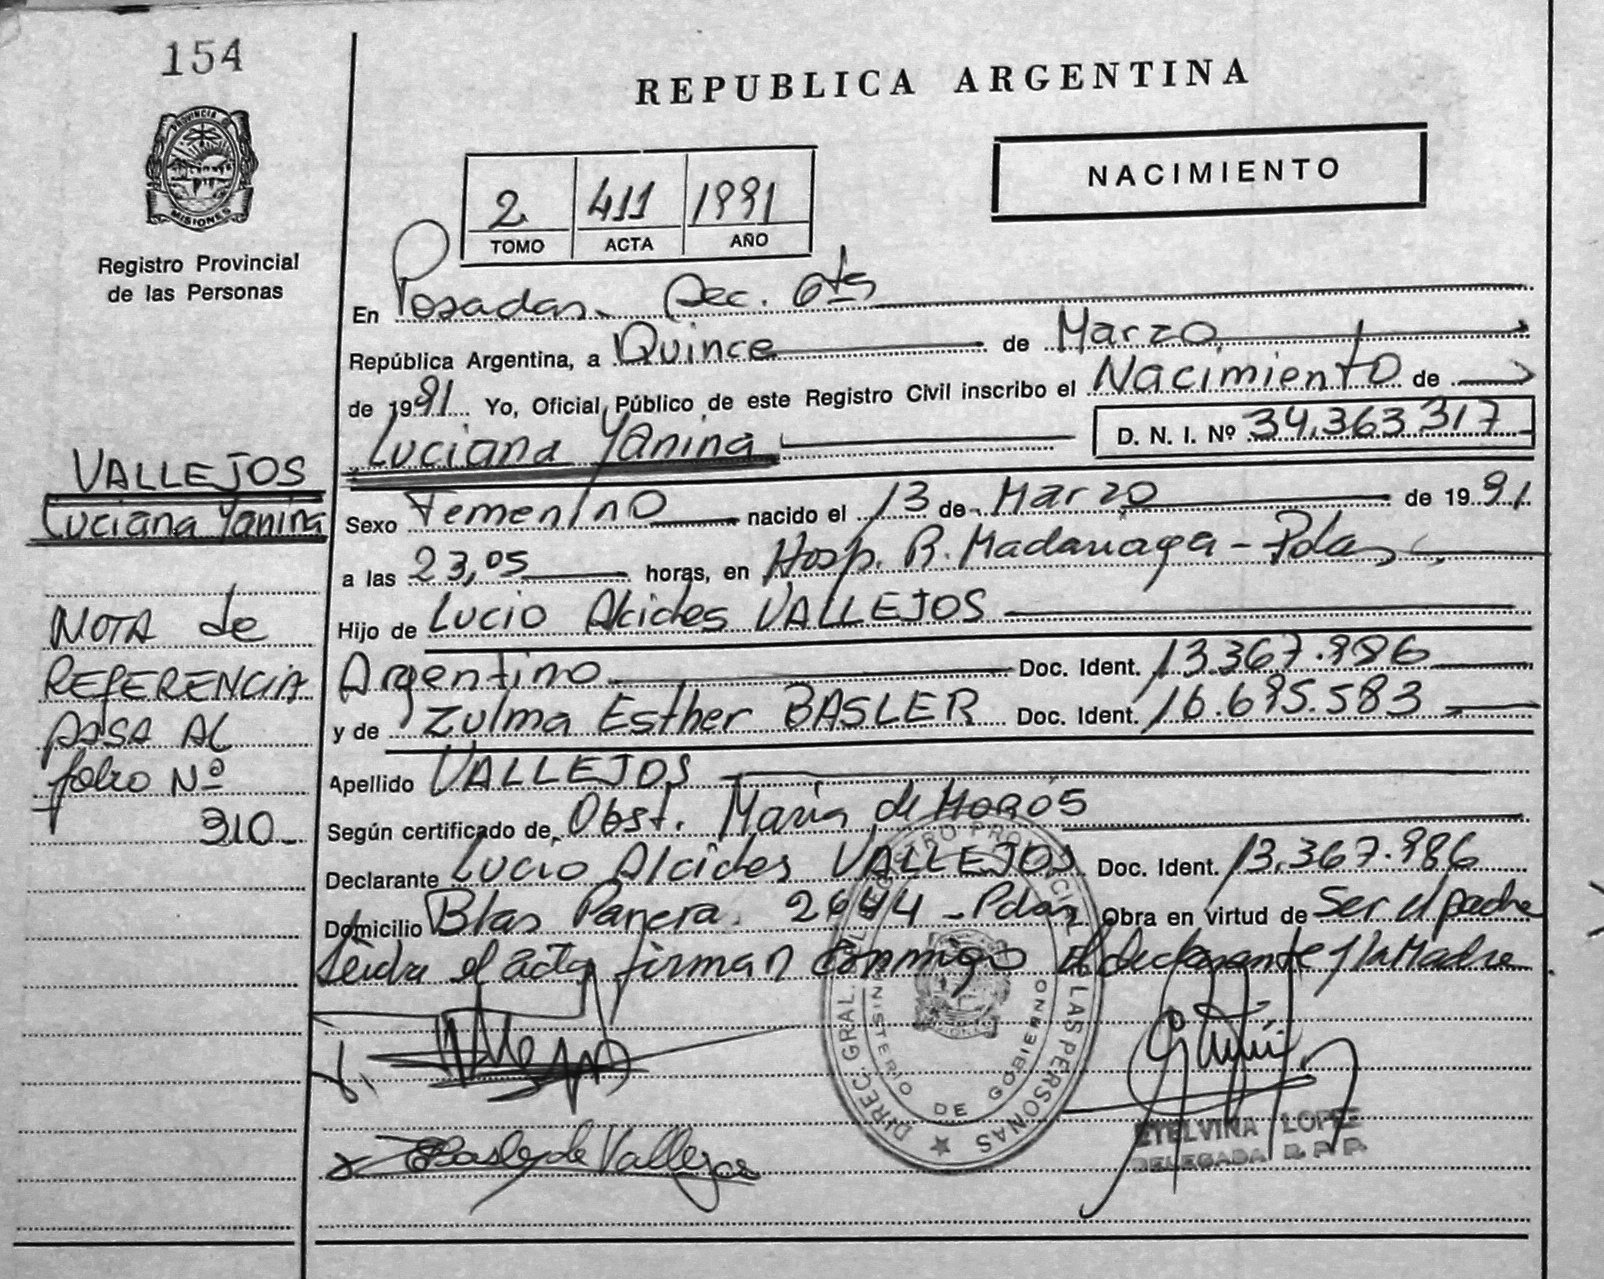 154
PROVINCIA D
MISIONES
Registro Provincial
de las Personas
REPUBLICA ARGENTINA
NACIMIENTO
2 411 1991
TOMO ACTA AÑO
En Posadas. Sec. 6ta
República Argentina, a Quince de Marzo
de 1991 Yo, Oficial Público de este Registro Civil inscribo el Nacimiento de
Luciana Yanina D. N. I. Nº 34.363.317
Sexo Femenino nacido el 13 de Marzo de 1991
a las 23,05 horas, en Hosp. R. Madariaga - Pdas
Hijo de Lucio Alcides VALLEJOS
Argentino Doc. Ident. 13.367.986
y de Zulma Esther BASLER Doc. Ident. 16.695.583
Apellido VALLEJOS
Según certificado de Obst. Maria de Morós
Declarante Lucio Alcides VALLEJOS Doc. Ident. 13.367.986
Domicilio Blas Parera. 2644 - Pdas Obra en virtud de Ser el padre
Leida el acta firman conmigo el declarante y la Madre
VALLEJOS
Luciana Yanina
NOTA de
REFERENCIA
PASA AL
folio Nº
310
Basler de Vallejos
DIREC. GRAL. REGISTRO PROVINCIAL DE LAS PERSONAS
MINISTERIO DE GOBIERNO
ETELVINA LOPEZ
DELEGADA R.P.P.